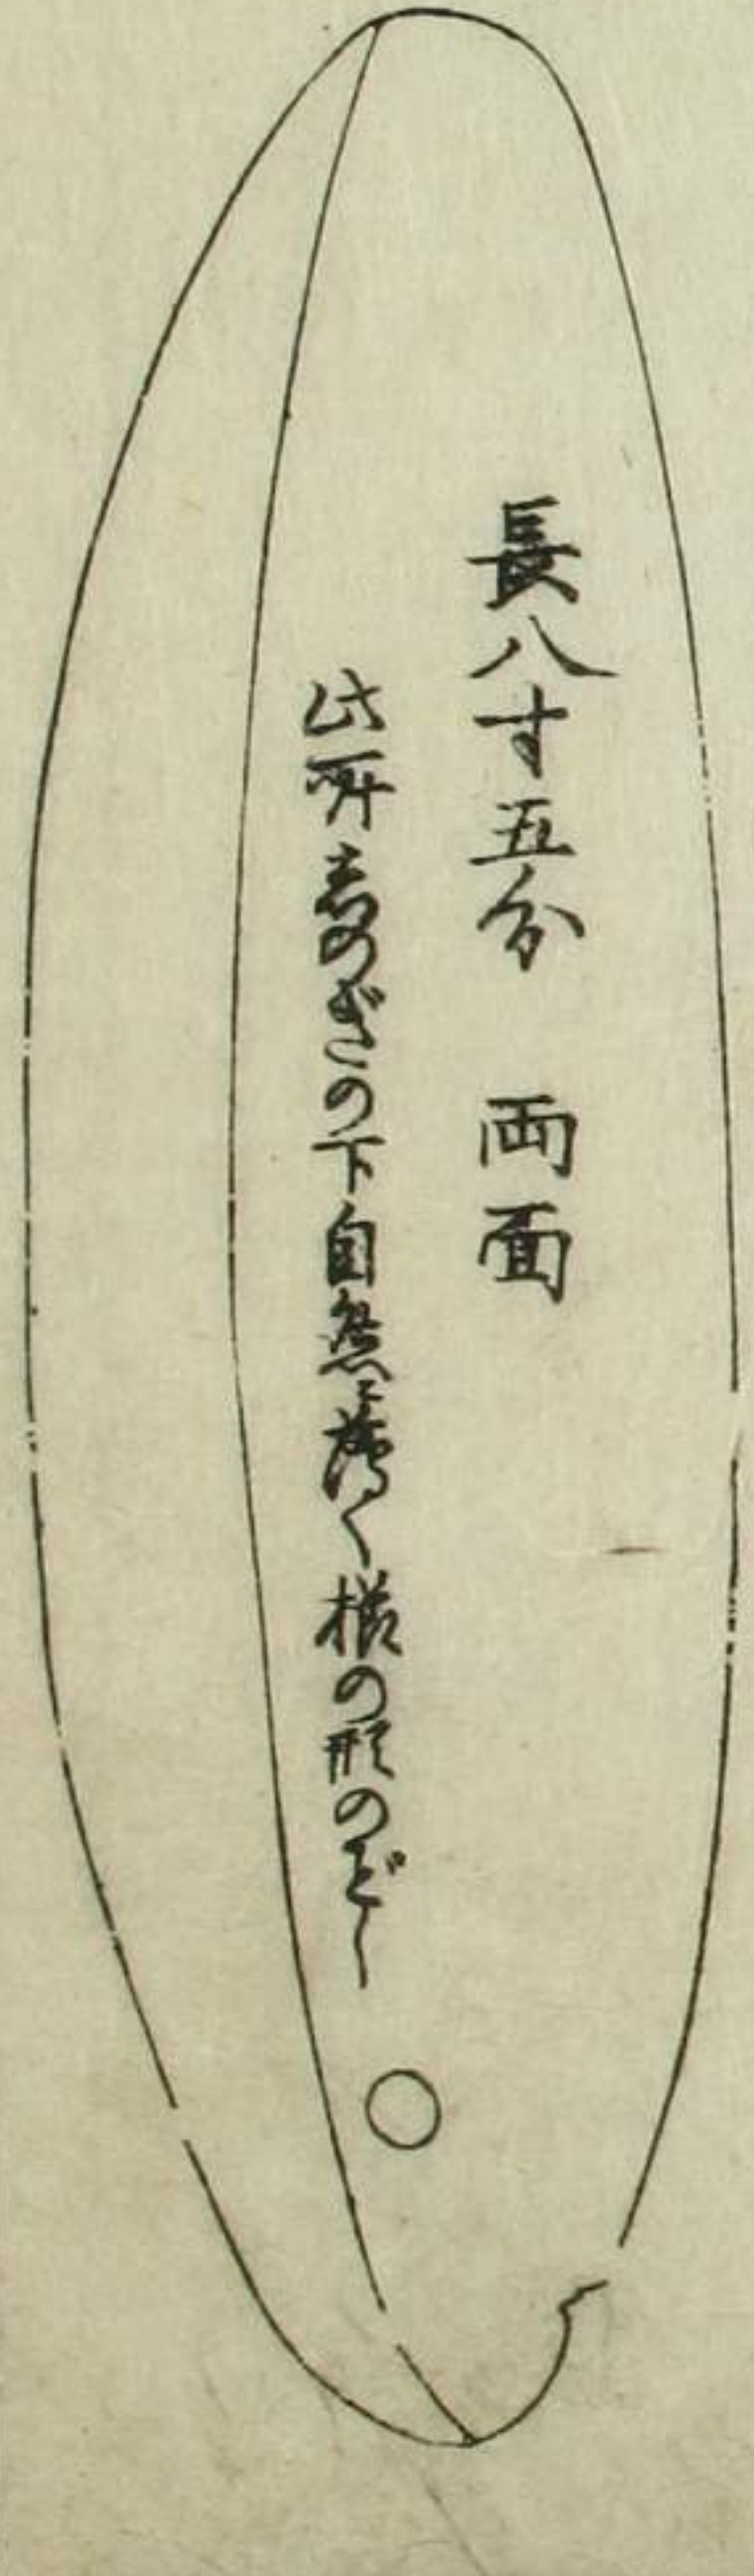 長八寸五分 両面
此所志のぎの下自然ニ薄く様の形のごとし